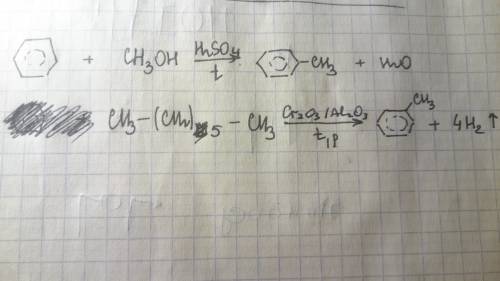 + CH3OH H2SO4 t → -CH3 + H2O
CH3-(CH2)5-CH3 Cr2O3/Al2O3 t,p → CH3 + 4H2↑